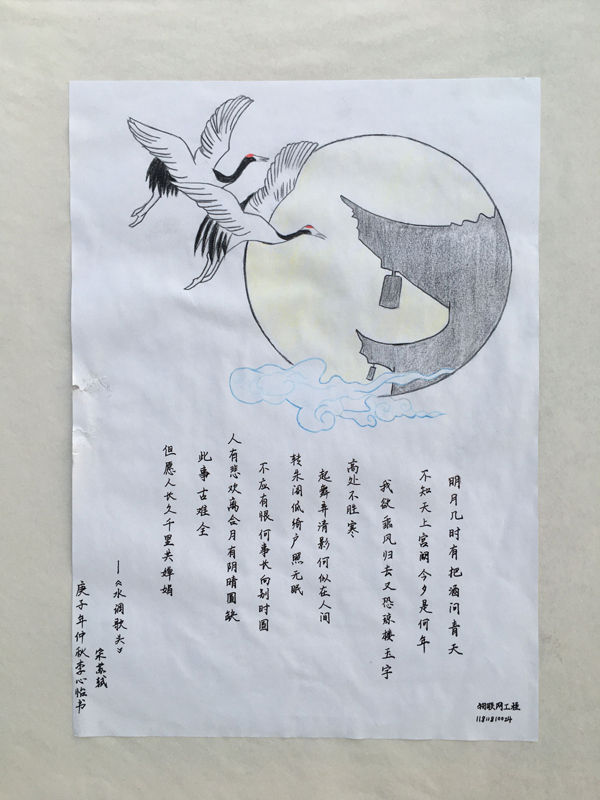 明月几时有把酒问青天
不知天上宫阙今夕是何年
我欲乘风归去又恐琼楼玉宇
高处不胜寒
起舞弄清影何似在人间
转朱阁低绮户照无眠
不应有恨何事长向别时圆
人有悲欢离合月有阴晴圆缺
此事古难全
但愿人长久千里共婵娟
—《水调歌头》
宋苏轼
庚子年仲秋李心怡书
物联网工程
11811810024